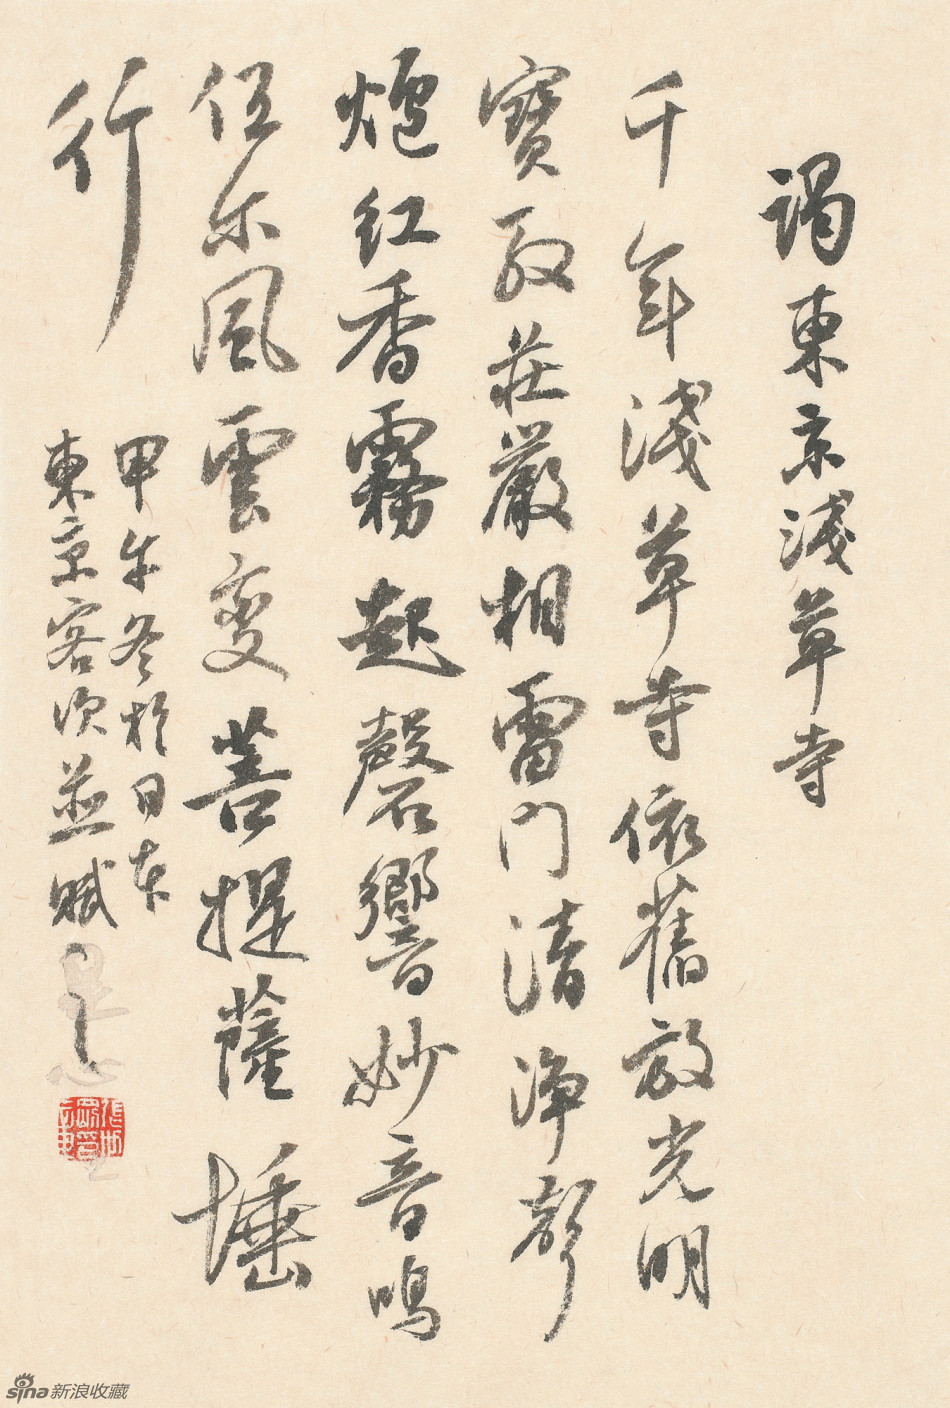 謁東京淺草寺
千年淺草寺依舊放光明
寶殿莊嚴相雷門清淨聲
爐紅香霧起磬響妙音鳴
任尔風雲变菩提薩埵
行
甲午冬於日本
東京客次並賦
sina新浪收藏